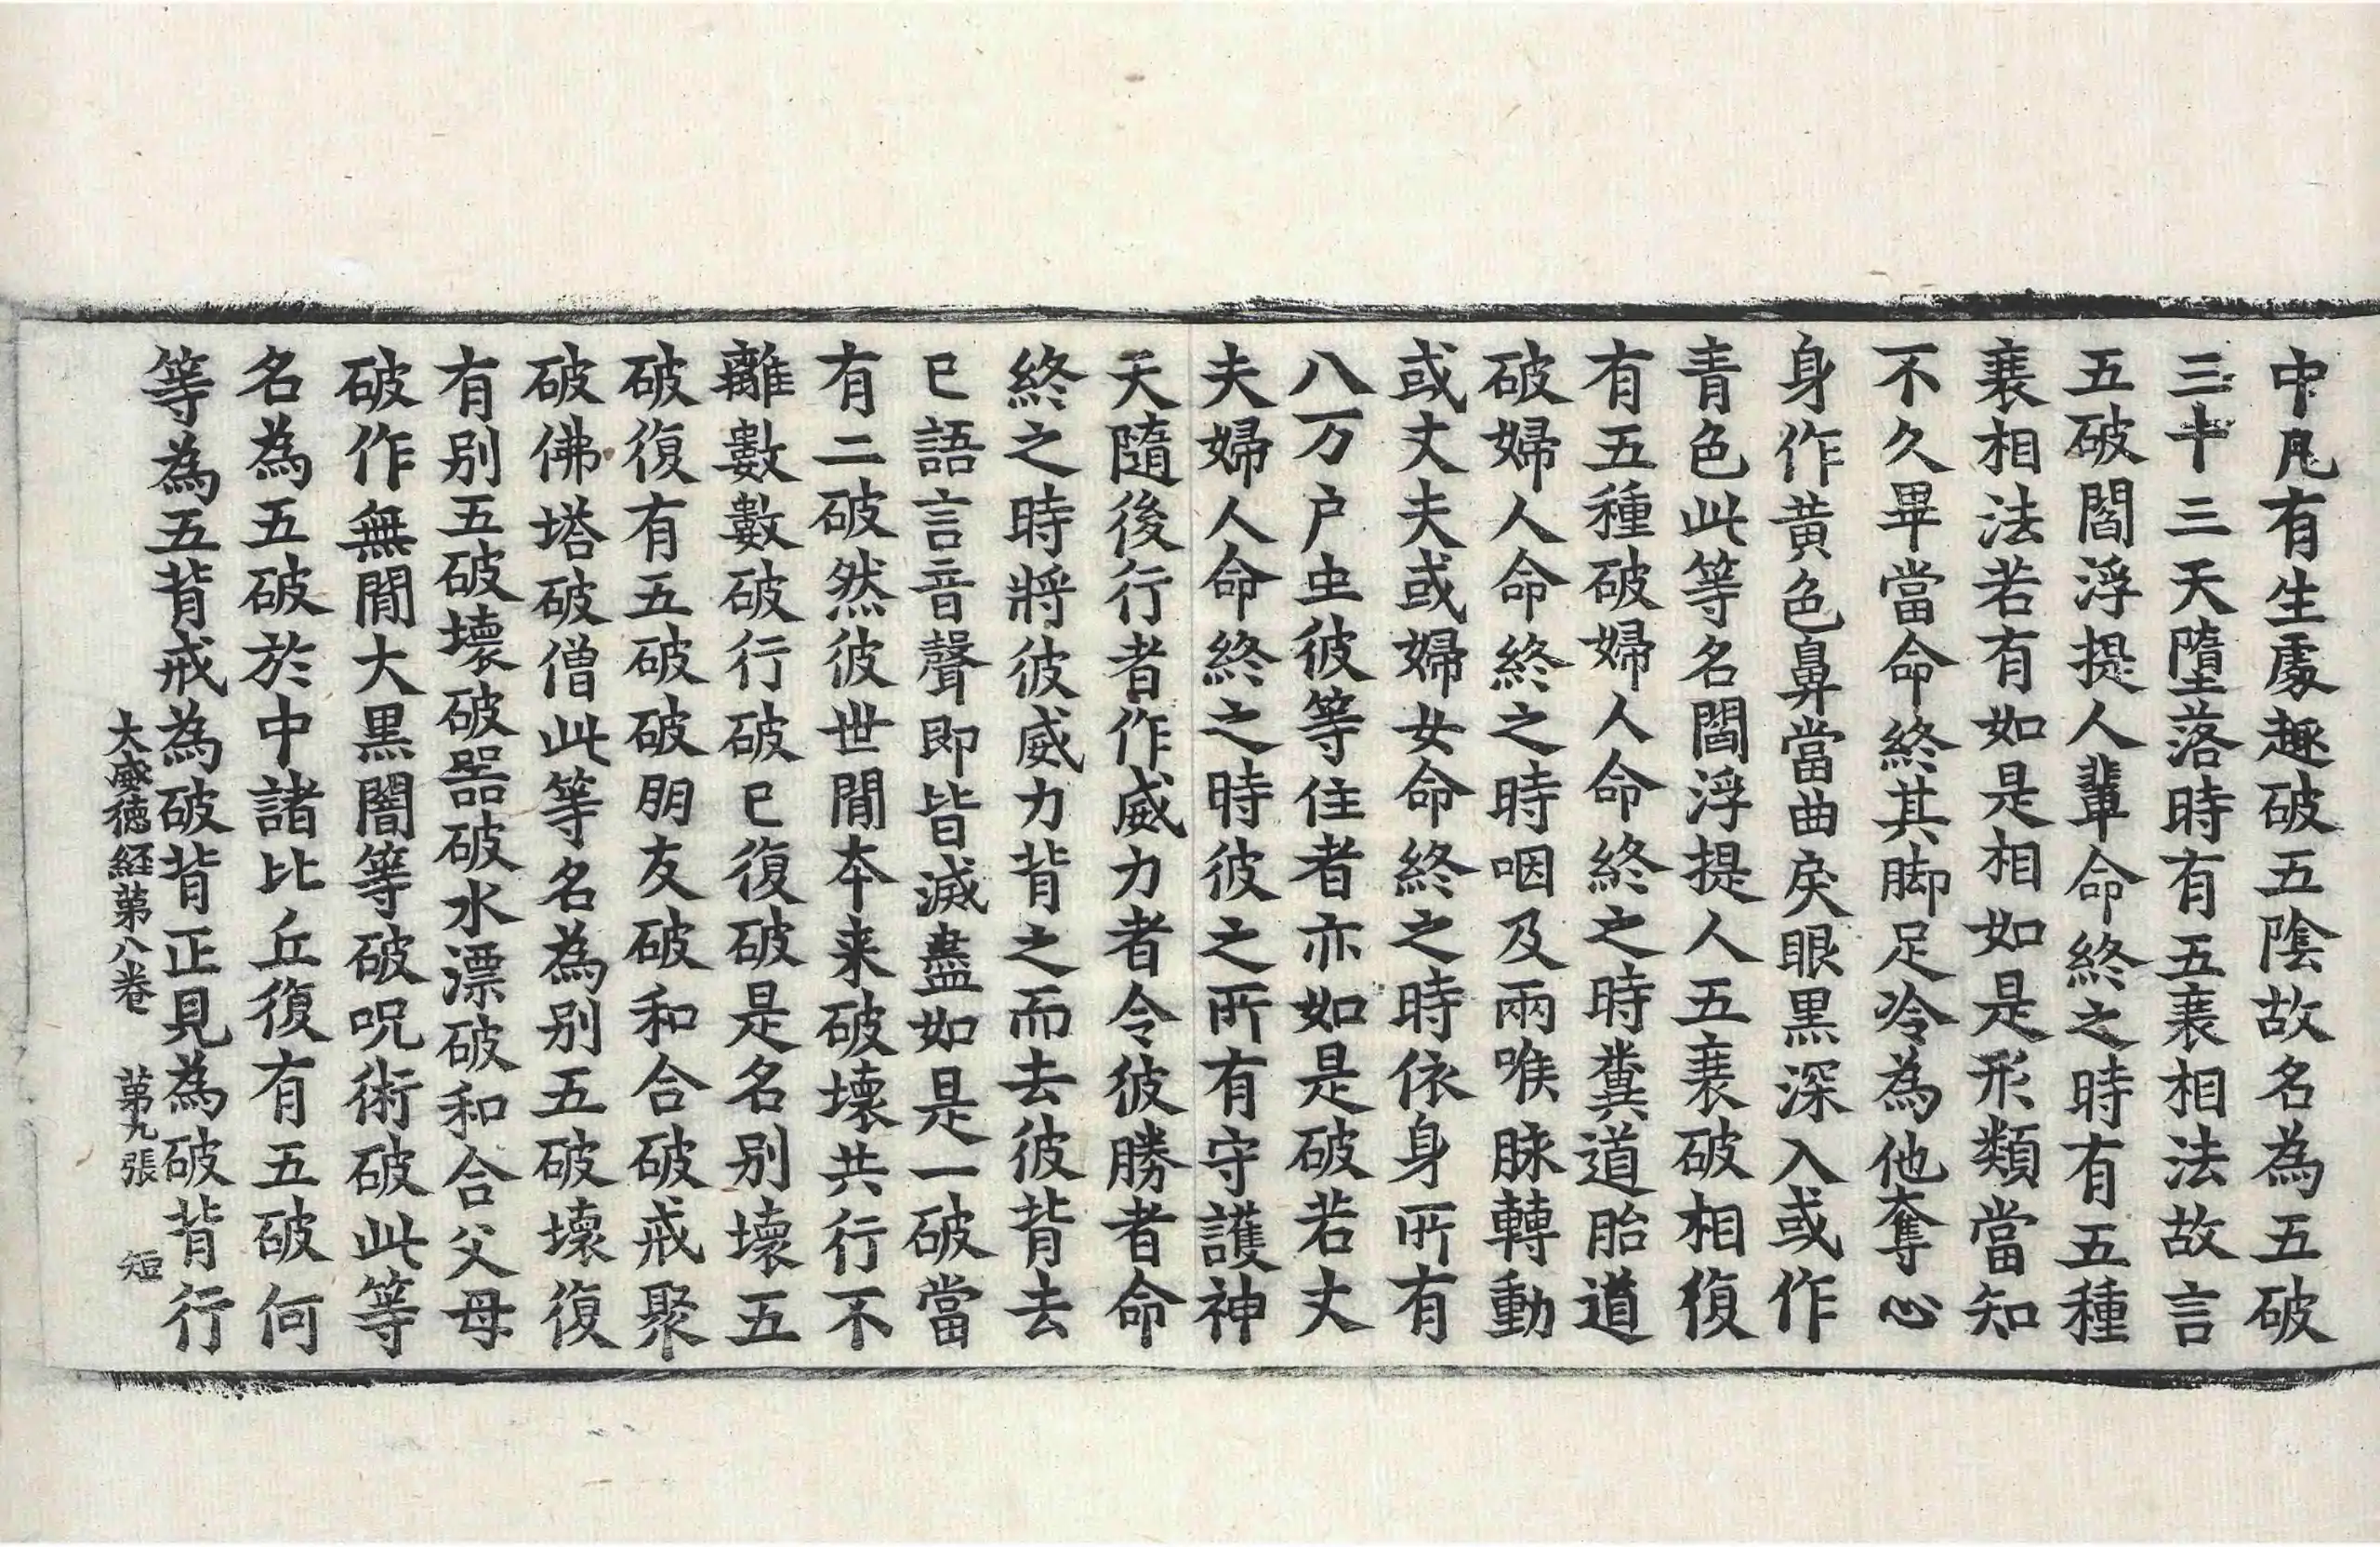 中凡有生處趣破五陰故名為五破
三十三天墮落時有五衰相法故言
五破閻浮提人輩命終之時有五種
衰相法若有如是相如是形類當知
不久畢當命終其脚足冷為他奪心
身作黃色鼻當曲戾眼黑深入或作
青色此等名閻浮提人五衰破相復
有五種破婦人命終之時糞道胎道
破婦人命終之時咽及兩喉脉轉動
或丈夫或婦女命終之時依身所有
八万户虫彼等住者亦如是破若丈
夫婦人命終之時彼之所有守護神
天隨後行者作威力者令彼勝者命
終之時將彼威力背之而去彼背去
已語言音聲即皆滅盡如是一破當
有二破然彼世間本来破壞共行不
離數數破行破已復破是名別壞五
破復有五破破朋友破和合破戒聚
破佛塔破僧此等名為別五破壞復
有別五破壞破器破水漂破和合父母
破作無間大黑闇等破呪術破此等
名為五破於中諸比丘復有五破何
等為五背戒為破背正見為破背行
大威德経苐八卷 苐九張 短